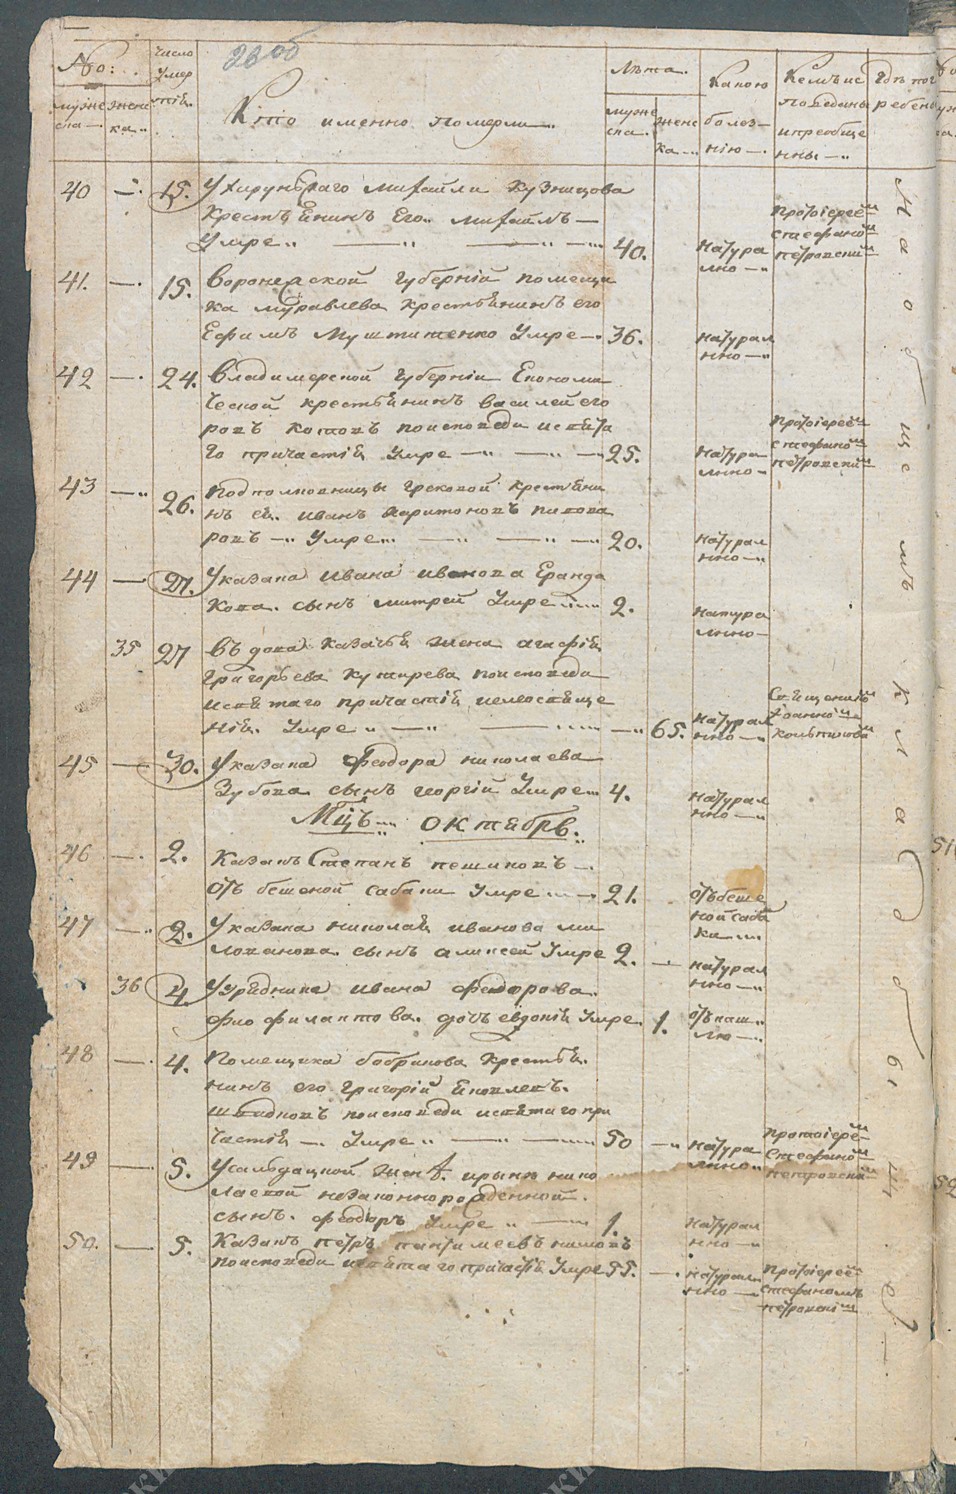 No:
мужеска
женска
Число умертвiя
Кто именно померли
Лѣта
мужеска
женска
Какою болезнiю
Кемъ исповеданы и преобщены
Где погребены
40 — 15. У хирунжаго михайли кузнецова
крестьенинъ Его михайлъ —
умре 40. натурално
Протоiереемъ стефаномъ петровскимъ
41. — 15. Воронежской губернiй помещи
ка муравлева крестьенинъ его
Ефимъ Муштаненко Умре — 36. натуралнно
42 — 24. Владимерской губернiи Економи
ческой крестьенинъ василей его
ровъ котовъ поисповеди исвята
го причастiя Умре — 25. натурално
Протоiереемъ стефаномъ петровскимъ
43 — 26. Подполковницы грековой крестьени
нъ ея иванъ харитоновъ пивова
ровъ — Умре — 20. натуралнно
44 — 27. Указака Ивана иванова Еранда
кова сынъ митрей Умре 2. натурално
35 27 Въдова казачья жена агафiя
григорьева кутырева поисповеди
исвятаго причастiя иелеосвяще
нiя Умре — 65. натуралнно
Священникомъ Iоанномъ
45 — 30. Указака Феодора николаева
Зубова сынъ георгiй Умре 4. натуралнно
Мцъ октябрь.
46 — 2. Казакъ Степанъ пешиковъ —
отъ бешеной сабаки Умре — 21. отъ бешеной сабака
47 — 2. Указака николая иванова ми
лованова сынъ алексей Умре 2. — натуралнно
36 4. Уурядника ивана федорова
фиофилактова дочь евдокiя Умре 1. откашлю
48 — 4. Помещика бобрикова крестья
нинъ его григорiй яковлевъ
поисповеди исвятаго при
частiя — Умре — 50 — натурално
Протоiереемъ Стефаномъ петровскимъ
49 — 5. Усалдацкой жены ирины нико
лаевой незаконнорожденной
сынъ феодоръ Умре — 1. натуралнно
50. — 5. Казакъ петръ пантилеевъ
поисповеди исвятаго причастiя Умре 55. — натуралнно
Протоiереемъ стефаномъ петровскимъ
На общемъ кладбищѣ